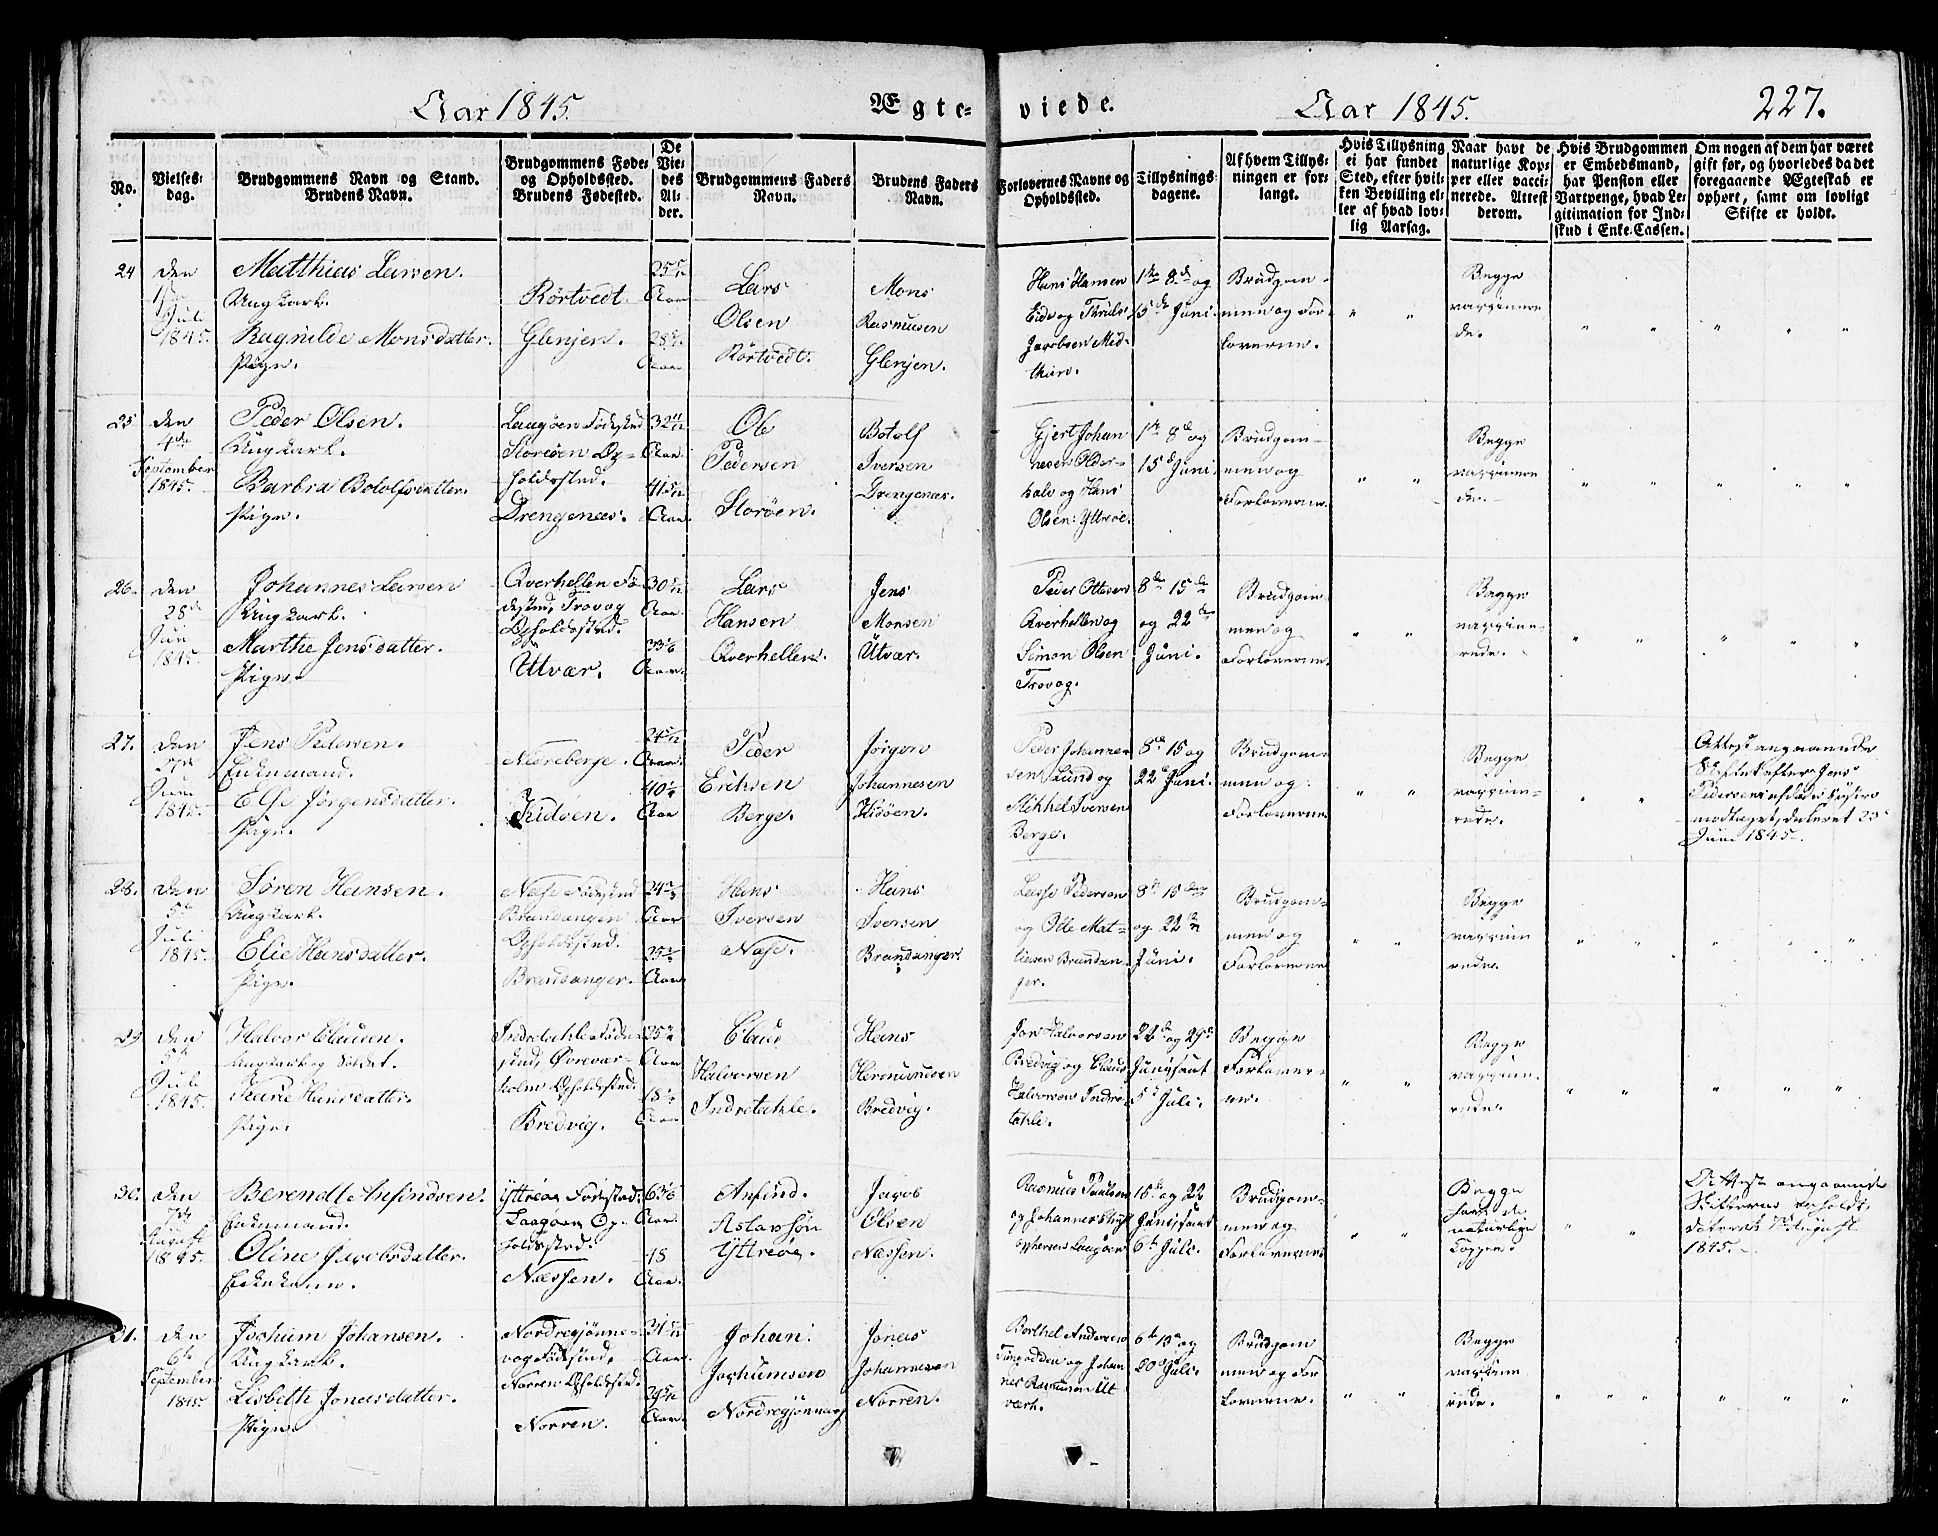 Aar 1845.
Ægte-
viede.
Aar 1845.
227.
No.
Vielses-
dag.
Brudgommens Navn og Stand.
Brudens Navn.
Brudgommens Føde-
og Opholdssted.
Brudens Fødested.
De
Vie-
des
Al-
der.
Brudgommens Faders
Navn.
Brudens Faders
Navn.
Forlovernes Navne og
Opholdssted.
Tillysnings-
dagene.
Af hvem Tillys-
ningen er for-
langt.
Hvis Tillysning
ei har fundet
Sted, efter hvil-
ken Bevilling el-
ler af hvad lov-
lig Aarsag.
Naar havt de
naturlige Kop-
per eller vacci-
nerede. Attest
derom.
Hvis Brudgommen
er Embedsmand,
har Pension eller
Vartpenge, hvad Le-
gitimation for Ind-
skud i Enke-Cassen.
Om nogen af dem har været
gift før, og hvorledes da det
foregaaende Ægteskab er
ophørt, samt om lovligt
Skifte er holdt.
24
den
Juli
1845.
Matthias Larsen.
Ungkarl.
Ragnilde Monsdatter.
Pige.
Rörtvedt
Glenjen.
Aar
Aar
Lars
Olsen
Rörtvedt.
Mons
Rasmusen
Glenjen.
Hans Hansen
Eide og Thruls
Jacobsen Mid-
thun.
1te 8de og
15de Juni.
Brudgom-
men og For-
loverne.
Begge
vaccinere
de.
25
den
4de
September
1845.
Peder Olsen.
Ungkarl.
Barbra Botolfsdatter.
Pige.
Laagöen Födested
Storöen Op-
holdssted.
Drengenæs.
Aar.
Aar.
Ole
Pedersen
Storöen.
Botolf
Iversen
Drengenæs.
Gjert Johan
nesen Older-
og Hans
Olsen Yttröe.
1te 8de og
15de Juni
Brudgom-
men og
Forloverne.
Begge
vaccinere
de.
26.
den
28de
Juni
1845.
Johannes Larsen
Ungkarl.
Marthe Jensdatter.
Pige.
Qverhellen Fö-
dested, Trovog
Opholdssted.
Utvær.
Aar
Aar.
Lars
Hansen
Qverhellen.
Jens
Monsen
Utvær.
Peder Ottesen
Qverhellen og
Simon Olsen
Trovog.
8de 15de
og 22de
Juni.
Brudgom
men og
Forloverne.
Begge
vaccine-
rede.
27.
den
Juni
1845.
Jens Pedersen.
Enkemand.
Else Jörgensdatter.
Pige.
Nedreberge.
Aar.
Aar
Peder
Eriksen
Berge.
Jörgen
Johannesen
Hisöen.
Peder Johanne-
sen Lund og
Mikkel Iversen
Berge.
8de 15 og
22de Juni.
Brudgom-
men og
Forloverne
Begge
vaccine-
rede.
Attest angaaende
Skifte efter Jens
Pedersens afdöde Hustro
modtaget, dateret 23de
Juni 1845.
28.
den
5te
Juli
1845.
Sören Hansen.
Ungkarl.
Elie Hansdatter.
Pige.
Næse Födested
Brandangen
Opholdssted.
Brandanger.
Aar
Aar
Hans
Iversen
Næse.
Hans
Iversen
Brandanger.
Lasse Pedersen
og Ole Mat-
hiesen Brandan-
ger.
8de 15de
og 22de
Juni.
Brudgom-
men og
Forloverne
Begge
vaccine
rede.
29
den
5te
Juli
1845.
Halvor Clausen.
Ungkarl og Soldat.
Karie Hansdatter.
Pige.
Indretahle Föde-
sted, Övrevar-
holm Opholdssted.
Bredvig.
Aar
Aar
Claus
Halvorsen
Indretahle.
Hans
Hermundsen
Bredvig.
Jon Halvorsen
Bredvig og Claus
Halvorsen Indre-
tahle.
22de og 29de
Juni samt
5te Juli.
Begge
Forlover-
ne.
Begge
vaccine-
rede.
30.
den
August
1845.
Berendt Anfindsen.
Enkemand.
Oline Jacobsdatter.
Enkekone.
Yttröe Födested.
Laagöen Op-
holdssted.
Næssen.
Aar.
48
Aar.
Anfind.
Aslavsön
Yttröe.
Jacob
Olsen
Næssen.
Rasmus Paulsen
og Johannes
Laagöen
15de og 22
Juni samt
6te Juli.
Brudgom-
men og
Forloverne
Begge
havt de
naturlige
Kopper.
Attest angaaende
Skifternes erholdt,
dateret August
1845.
31.
den
6te
September
1845.
Jochum Johansen.
Ungkarl.
Lisbeth Jonasdatter.
Pige.
Nordregjönne-
vog Födested,
Norren Opholdssted.
Norren.
Aar.
Aar.
Johan.
Jochumsen
Nordregjönnevog
Jonas
Johannesen
Norren.
Borthel Andersen
Tungodden og Johan
nes Rasmusen Ut
værk.
6te 13de og
20de Juli.
Brudgom
men og For
loverne.
Begge
vaccine
rede.